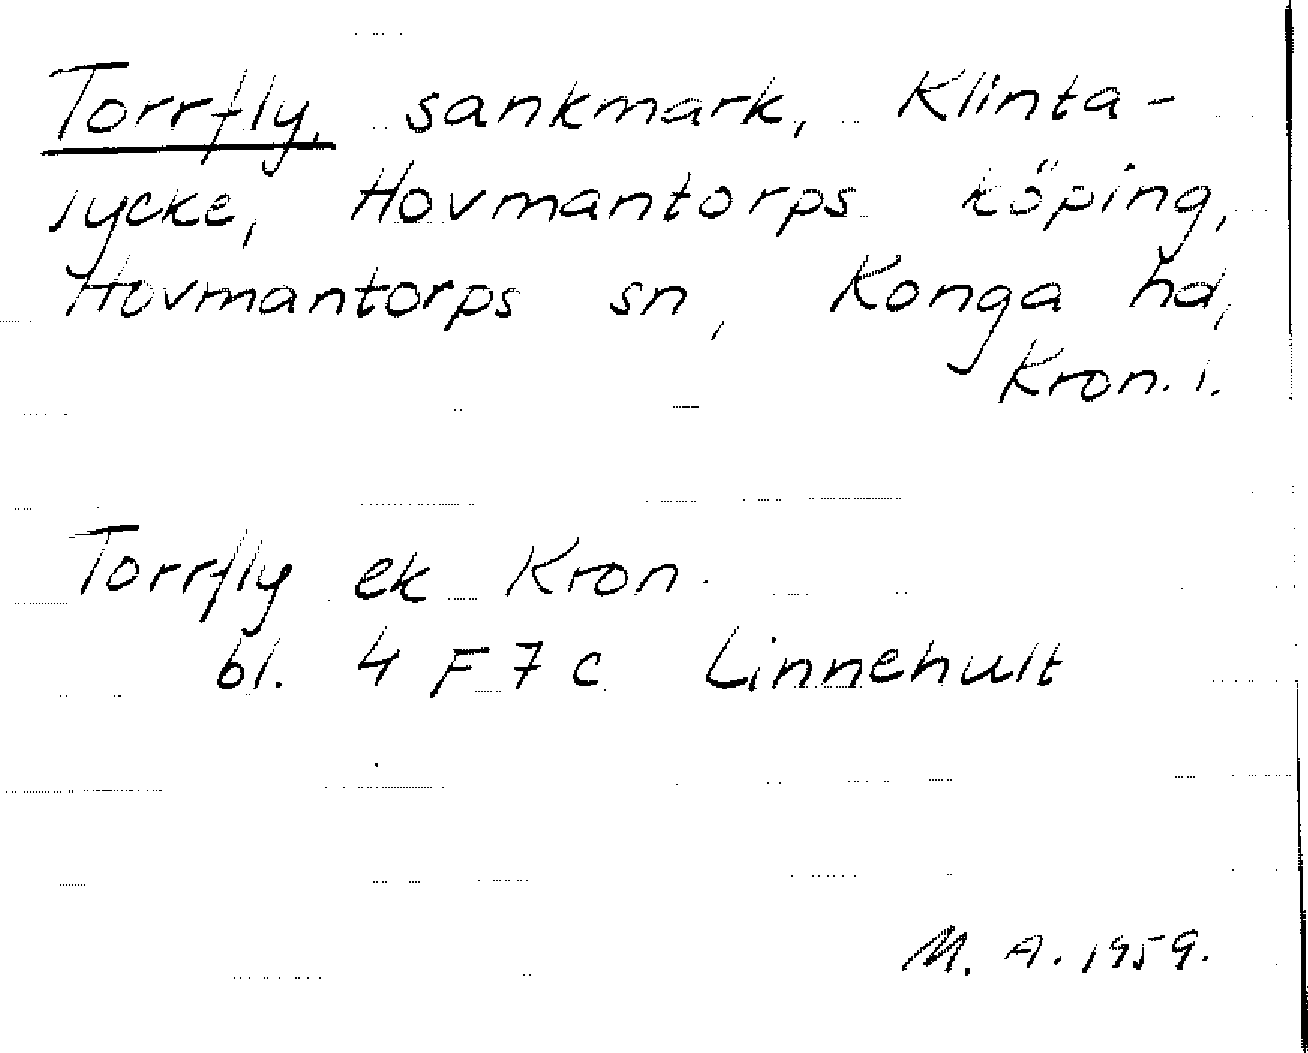 Torrfly, sankmark, Klinta-
lycke, Hovmantorps köping,
Hovmantorps sn, Konga hd,
Kron. l.
Torrfly ek Kron.
bl. 4 F 7 c Linnehult
M. A. 1959.